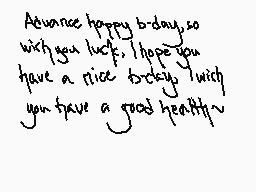 Advance happy b-day, so
wich you luck, I hope you
have a nice b-day, I wich
you have a good health~